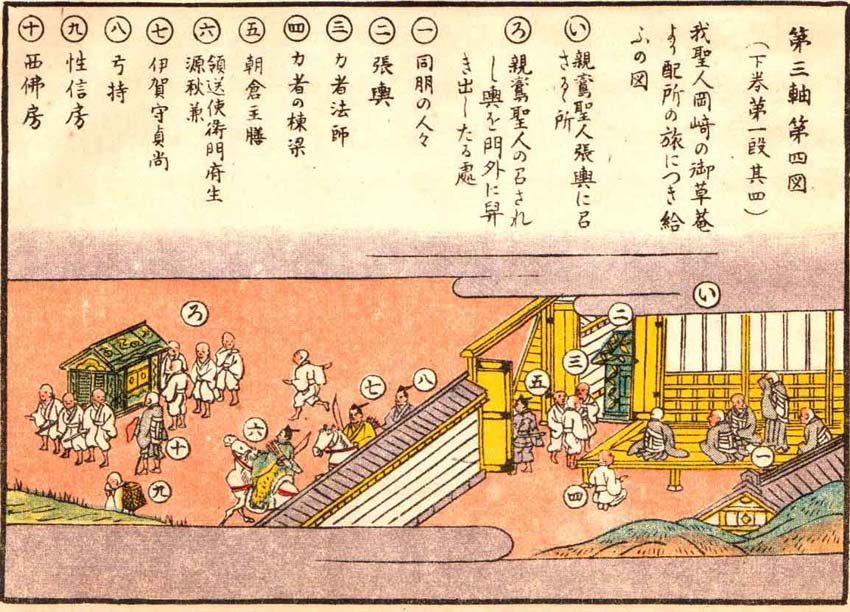 第三軸第四図
(下巻第一段其四)
我聖人岡﨑の御草菴
より配所の旅につき給
ふの図
い 親鸞聖人張輿に召
さるゝ所
ろ 親鸞聖人の召され
し輿を門外に舁
き出したる處
一 同朋の人々
二 張輿
三 力者法師
四 力者の棟梁
五 朝倉主膳
六 領送使衛門府生
源秋兼
七 伊賀守貞尚
八 弓持
九 性信房
十 西佛房
い
ろ
二
三
五
八
七
六
四
一
十
九